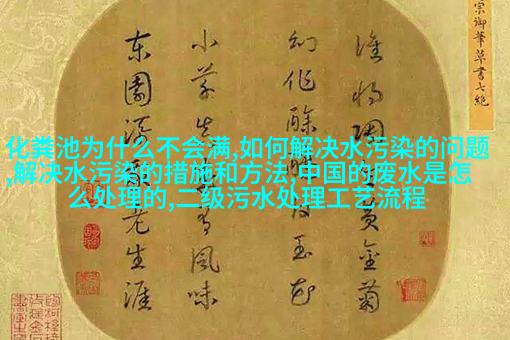 宗御筆草書七絕
誰將陶令黃金菊
幻作酴醾白玉花
小草真成有風味
東園添我老生涯
化粪池为什么不会满,如何解决水污染的问题
,解决水污染的措施和方法,中国的废水是怎
么处理的,二级污水处理工艺流程